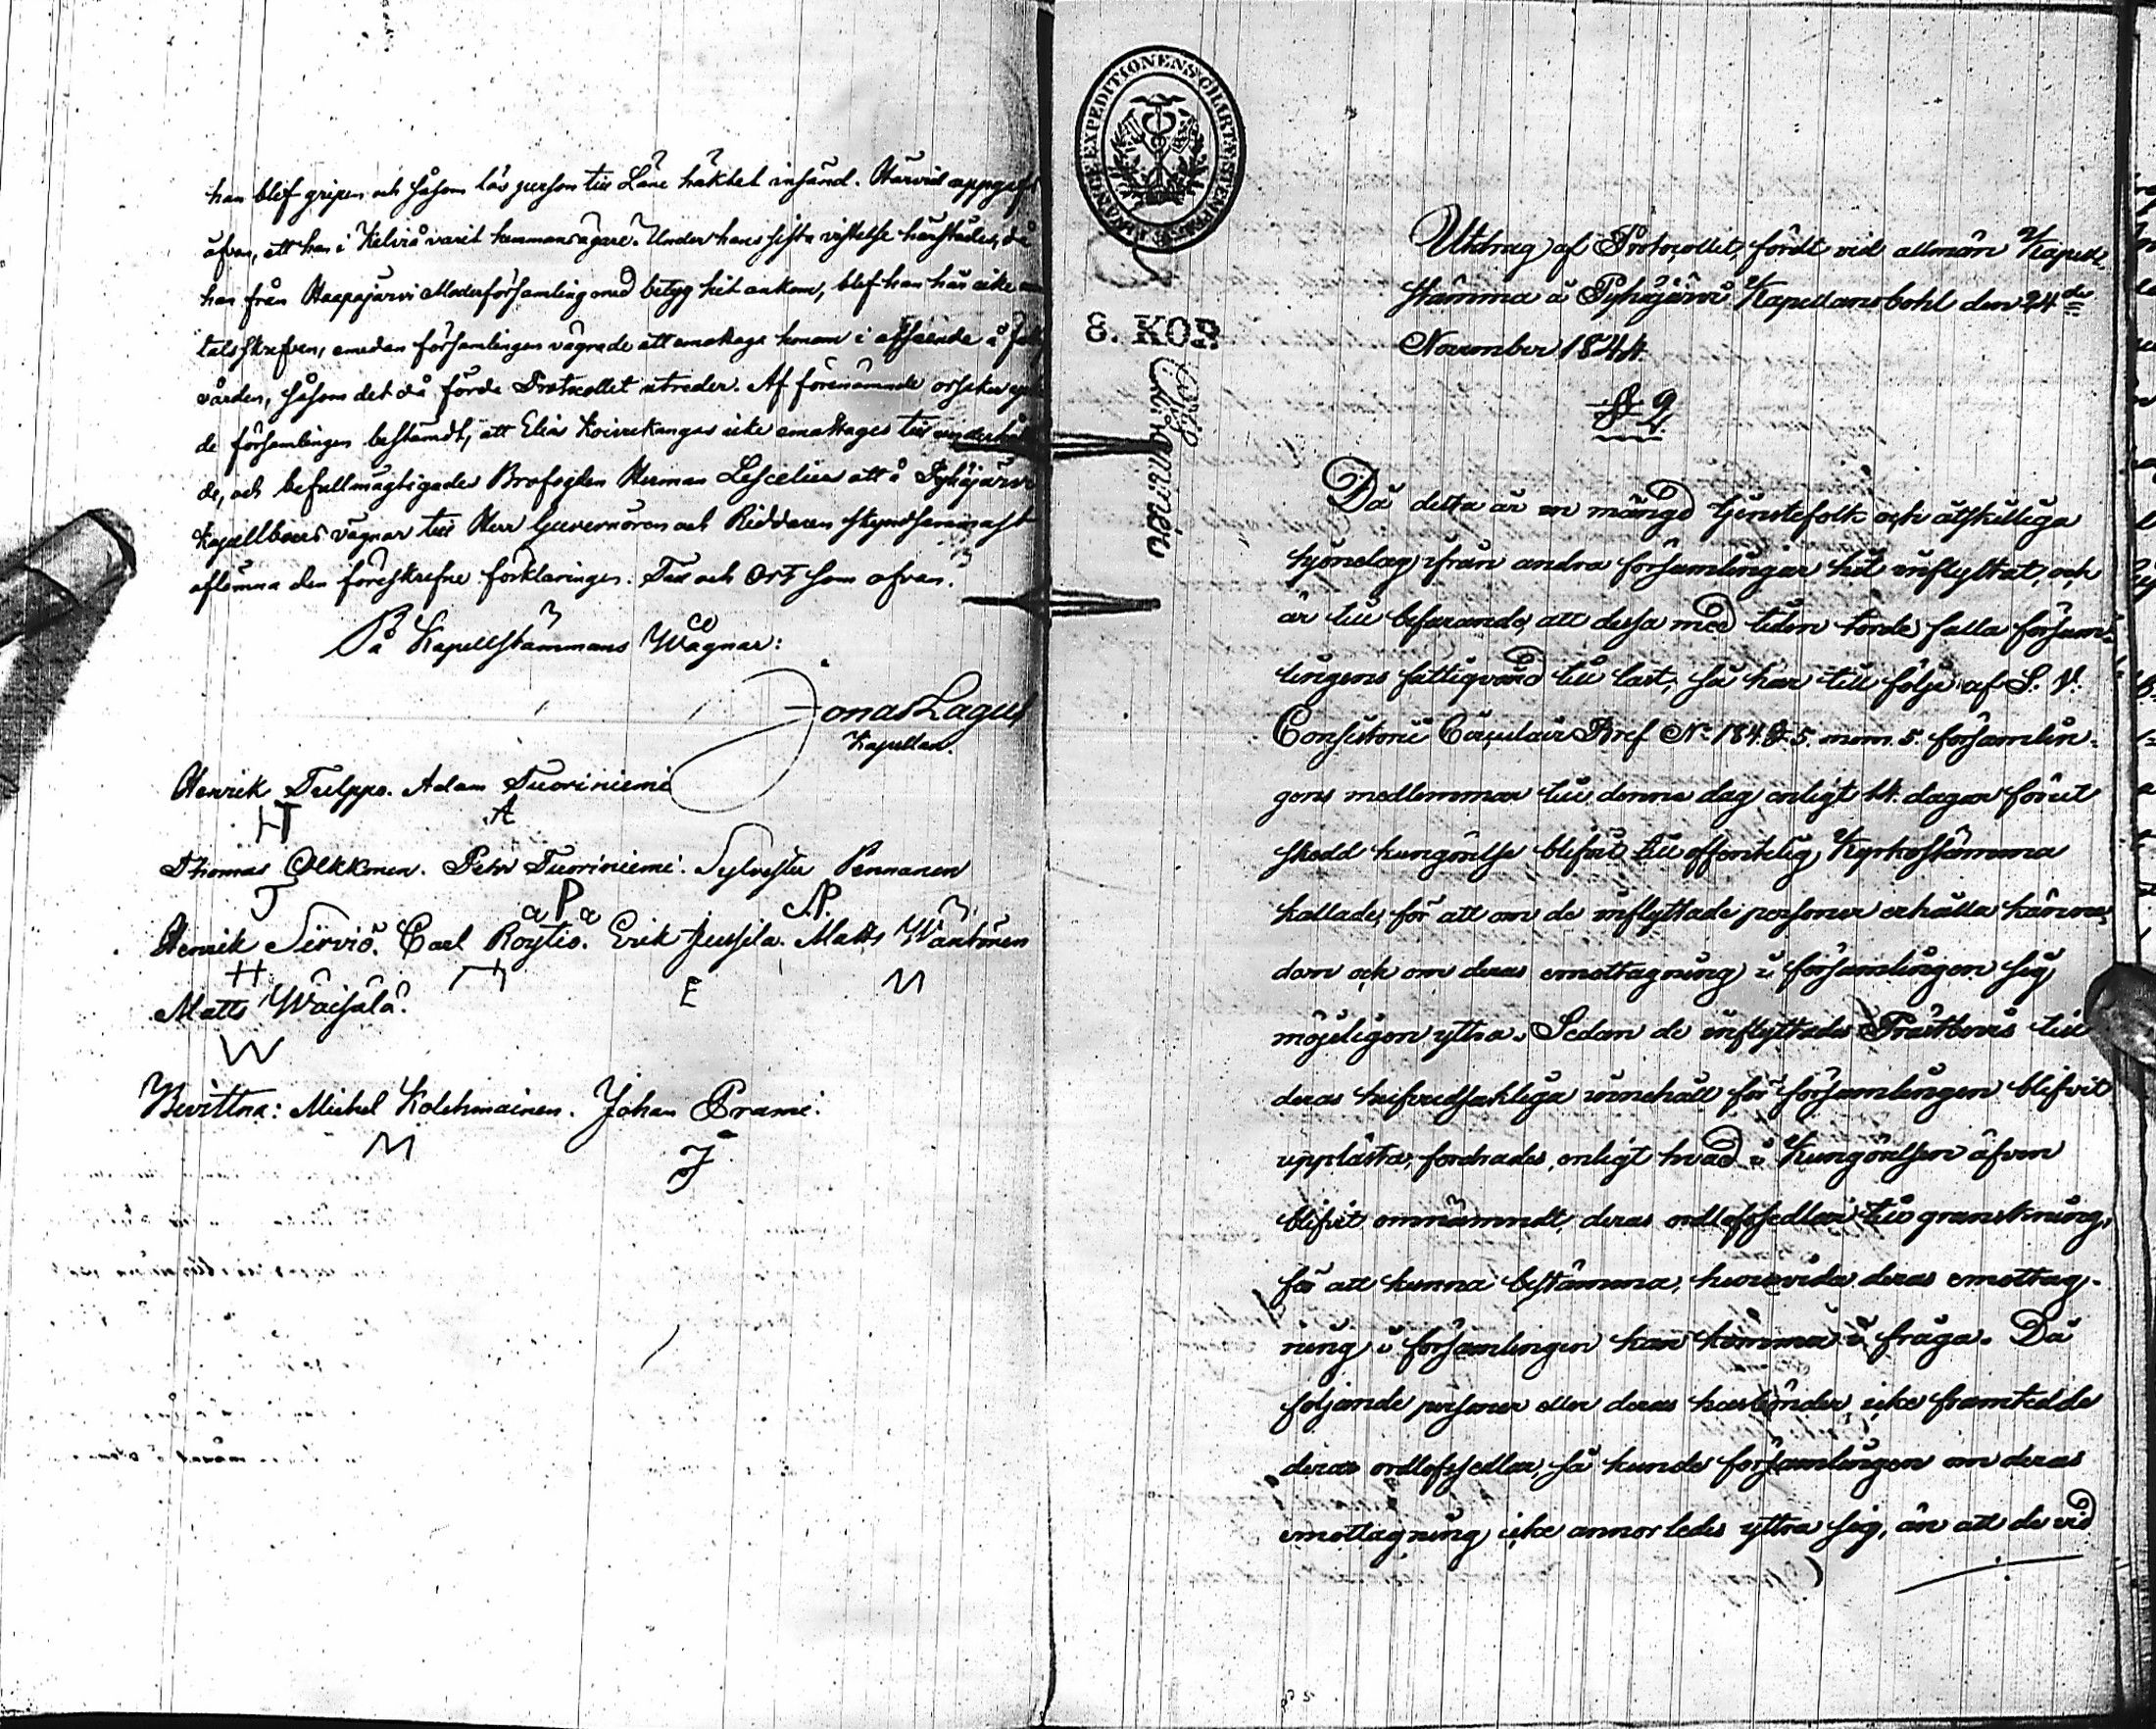 han blef gripen och såsom lös person till Läne häktet insänd. Härvid uppgafs
äfven, att han i Kelviå varit hemmansägare. Under hans sista vistelse härstädes, då
han från Haapajärvi Moderförsamling med betyg hit ankom, blef han här icke
talsskrefven, emedan församlingen vägrade att emottaga honom i afseende å
vården, såsom det då förde Protocollet utreder. Af förenämnde orsaker
de församlingen bestämdt, att Elias Koivukangas icke emottages till
de, och befullmägtigades Brofogden Herman Lescelius att å Pyhäjärvi
Kapellboers vägnar till Herr Guvernören och Riddaren skyndsammast
aflemna den föreskrefne förklaringen. Tid och Ort som ofvan.
På Kapellstämmans Wägnar:
Jonas Lagus
Kapellan.
Henrik Tulppo. Adam Tuoriniemi
HT A
Thomas Olkkonen. Petr Tuoriniemi. Sylvester Pennanen
T P S.P.
Henrik Sirviö. Carl Röytiö. Erik Jussila. Matts Wäntönen
H E M
Matts Wäisälä.
W
Bevittna: Michel Kolehmainen. Johan Prami.
M J
FINSKA EXPEDITIONENS CHARTÆ STEMPEL
8. KOP.
Utdrag af Protocollet, fördt vid allmän Kapell-
stämma å Pyhäjärvi Kapellansbohl den 24de
November 1844.
§ 9.
Då detta år en mängd tjenstefolk och åtskilliga
hjonelag ifrån andra församlingar hit inflyttat, och
är till befarande, att dessa med tiden torde falla försam-
lingens fattigvård till last, så har till följe af S. V.
Consistorii Circulair Bref No 184. § 5. mom. 5. församlin-
gens medlemmar till denna dag enligt 14. dagar förut
skedd kungörelse blifvit till offentelig Kyrkostämma
kallade, för att om de inflyttade personer erhålla känne-
dom och om deras emottagning i församlingen sig
möjeligen yttra. Sedan de inflyttades Prästbevis till
deras hufvudsakliga innehåll för församlingen blifvit
upplästa, fordrades, enligt hvad i Kungörelsen äfven
blifvit omnämndt, deras ordlofssedlar till granskning,
för att kunna bestämma, huruvida deras emottag-
ning i församlingen kan komma i fråga. Då
följande personer eller deras husbönder icke framtedde
deras ordlofssedlar, så kunde församlingen om deras
emottagning icke annorledes yttra sig, än att de vid